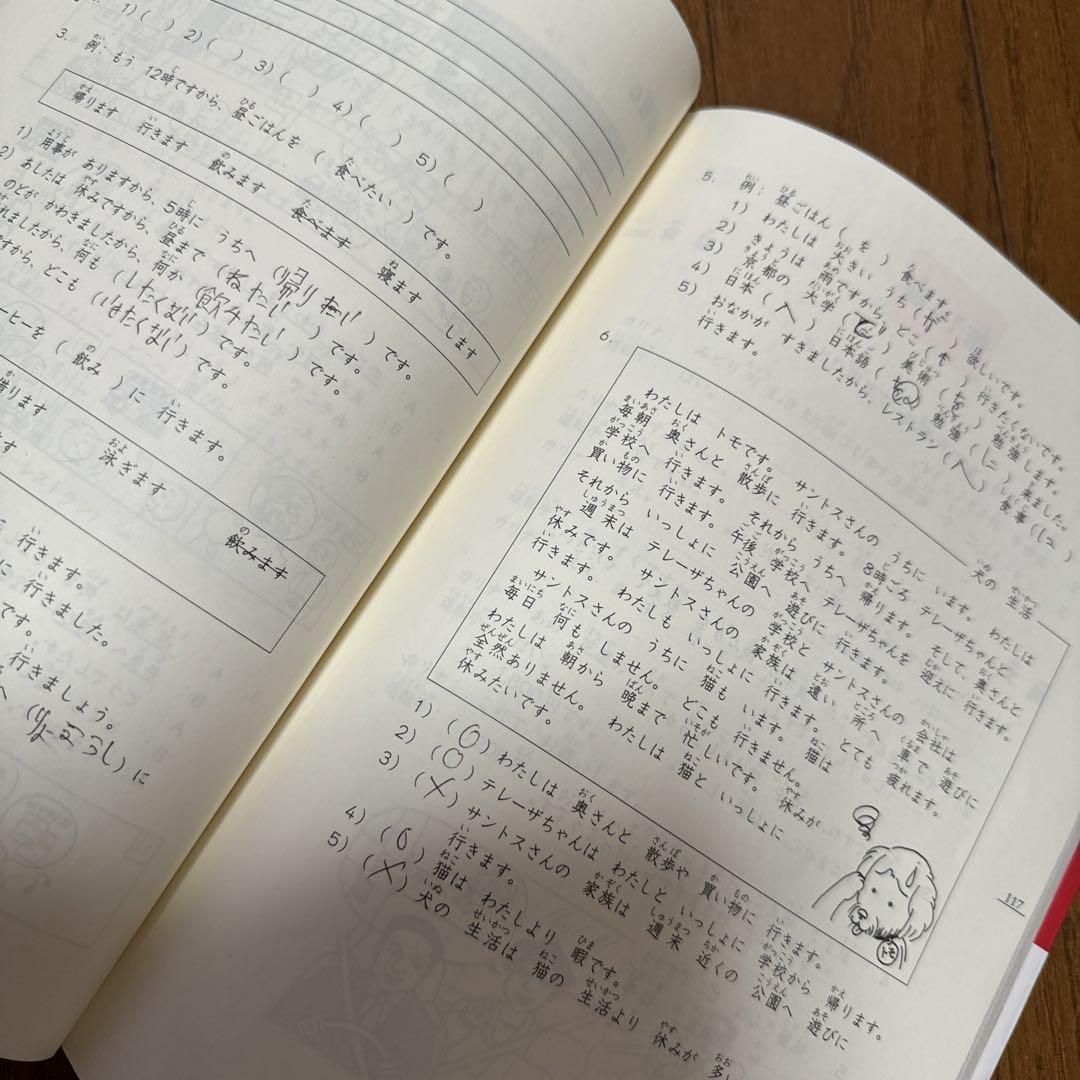 1) (   ) 2) (   ) 3) (   ) 4) (   ) 5) (   )
3. 例：もう 12時ですから、昼ごはんを ( 食べたい ) です。
帰ります 行きます 飲みます 食べます 寝ます します
1) 用事が ありますから、5時に うちへ (帰りたい) です。
2) あしたは 休みですから、昼まで (ねたい) です。
のどが かわきましたから、何か (飲みたい) です。
れましたから、何も (したくない) です。
ですから、どこも (いきたくない) です。
ーヒーを ( 飲み ) に 行きます。
借ります 泳ぎます 飲みます
行きます。
に 行きました。
です。
行きましょう。
へ (りょこうし) に
5. 例：昼ごはん ( を ) 食べます。
1) わたしは 大きい うち (が) 欲しいです。
2) きょうは 雨ですから、どこ (も) 行きたくないです。
3) 京都の 大学 (で) 美術 (を) 勉強します。
4) 日本 (へ) 日本語 (を) 勉強 (に) 来ました。
5) おなかが すきましたから、レストラン (へ) 食事 (に)
行きます。
6.
犬の 生活
わたしは トモです。 サントスさんの うちに います。 わたしは
毎朝 奥さんと 散歩に 行きます。 それから 8時ごろ テレーザちゃんと
学校へ 行きます。 それから うちへ 帰ります。 そして、奥さんと
買い物に 行きます。 午後 学校へ テレーザちゃんを 迎えに 行きます。
それから いっしょに 公園へ 遊びに 行きます。
週末は テレーザちゃんの 学校と サントスさんの 会社は
休みです。 サントスさんの 家族は 遠い 所へ 車で 遊びに
行きます。 わたしも いっしょに 行きます。 とても 疲れます。
サントスさんの うちに 猫も います。 猫は
毎日 何も しません。 どこも 行きません。
わたしは 朝から 晩まで 忙しいです。 休みが
全然 ありません。 わたしは 猫と いっしょに
休みたいです。
トモ
1) (○) わたしは 奥さんと 散歩や 買い物に 行きます。
2) (○) テレーザちゃんは わたしと いっしょに 学校から 帰ります。
3) (×) サントスさんの 家族は 週末 近くの 公園へ 遊びに
行きます。
4) (○) 猫は わたしより 暇です。
5) (×) 犬の 生活は 猫の 生活より 休みが 多い
117